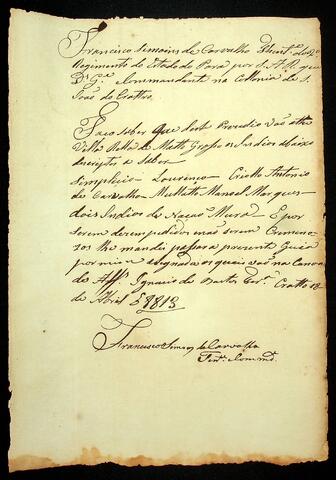 Francisco Simoins de Carvalho Thent. do
Regimento do Estado do Pará por S. A. R. que
D.s G.e Commandante na Collonia de S.
João do Cratto.
Faço saber que deste Prezidio vão athe
Villa Bella de Mato Groso os Indios abaixo
descriptos a saber
Simplicio Lourenço Criollo Antonio
de Carvalho Mullatto Manoel Marques
dois Indios de Nação Mura E por
serem despedidos e não serem Crimino
zos lhe mandei passar a prezente Guia
por mim asignada os quais vão na Canoa
do Alf.s Ignacio de Cratto 12
de Abril D 1813
Francisco Simoens de Carvalho
Ten.e Comm.de